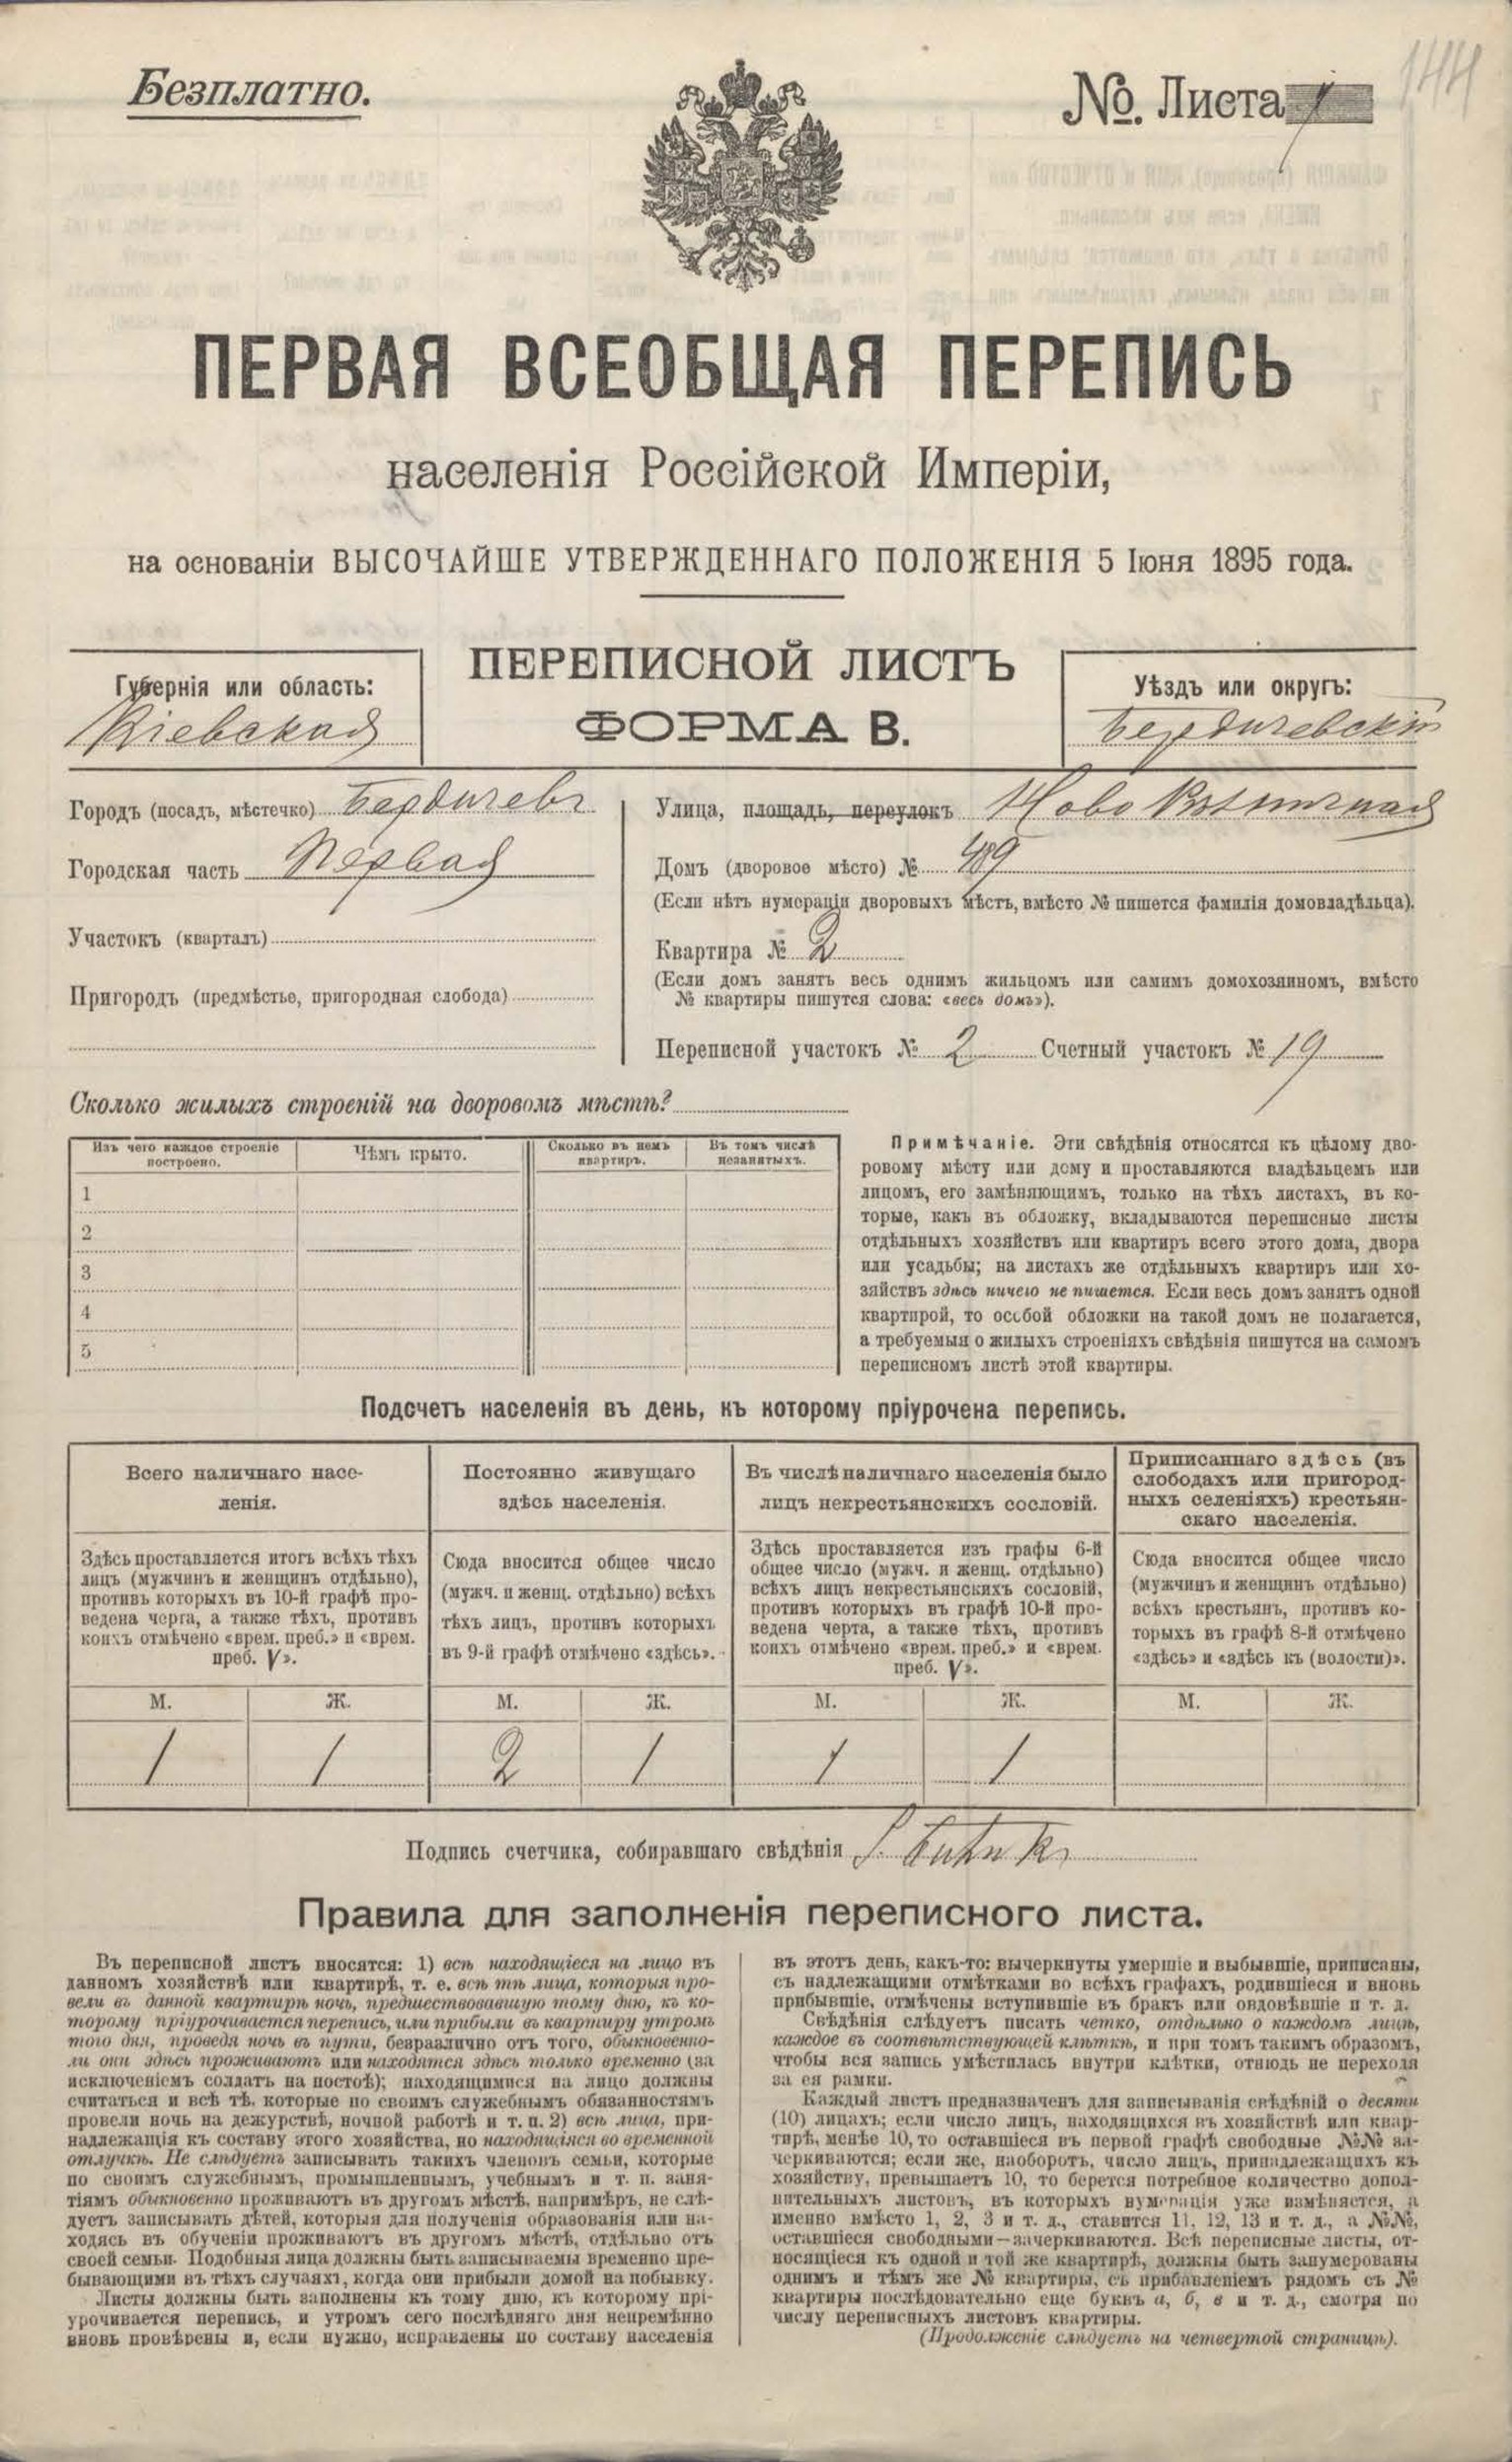 Безплатно.
№. Листа 1
144
ПЕРВАЯ ВСЕОБЩАЯ ПЕРЕПИСЬ
населенія Россійской Имперіи,
на основаніи ВЫСОЧАЙШЕ УТВЕРЖДЕННАГО ПОЛОЖЕНІЯ 5 Іюня 1895 года.
Губернія или область:
Кіевская
ПЕРЕПИСНОЙ ЛИСТЪ
ФОРМА В.
Уѣздъ или округъ:
Бердичевскій
Городъ (посадъ, мѣстечко) Бердичевъ
Городская часть Первая
Участокъ (кварталъ)
Пригородъ (предмѣстье, пригородная слобода)
Улица, площадь, переулокъ Ново
Домъ (дворовое мѣсто) № 489
(Если нѣтъ нумераціи дворовыхъ мѣстъ, вмѣсто № пишется фамилія домовладѣльца).
Квартира № 2
(Если домъ занятъ весь однимъ жильцомъ или самимъ домохозяиномъ, вмѣсто
№ квартиры пишутся слова: «весь домъ»).
Переписной участокъ № 2 Счетный участокъ № 19
Сколько жилыхъ строеній на дворовомъ мѣстѣ?
Изъ чего каждое строеніе
построено.
Чѣмъ крыто.
Сколько въ немъ
квартиръ.
Въ томъ числѣ
незанятыхъ.
1
2
3
4
5
Примѣчаніе. Эти свѣдѣнія относятся къ цѣлому дво-
ровому мѣсту или дому и проставляются владѣльцемъ или
лицомъ, его замѣняющимъ, только на тѣхъ листахъ, въ ко-
торые, какъ въ обложку, вкладываются переписные листы
отдѣльныхъ хозяйствъ или квартиръ всего этого дома, двора
или усадьбы; на листахъ же отдѣльныхъ квартиръ или хо-
зяйствъ здѣсь ничего не пишется. Если весь домъ занятъ одной
квартирой, то особой обложки на такой домъ не полагается,
а требуемыя о жилыхъ строеніяхъ свѣдѣнія пишутся на самомъ
переписномъ листѣ этой квартиры.
Подсчетъ населенія въ день, къ которому пріурочена перепись.
Всего наличнаго насе-
ленія.
Здѣсь проставляется итогъ всѣхъ тѣхъ
лицъ (мужчинъ и женщинъ отдѣльно),
противъ которыхъ въ 10-й графѣ про-
ведена черта, а также тѣхъ, противъ
коихъ отмѣчено «врем. преб.» и «врем.
преб. V».
М. Ж.
1 1
Постоянно живущаго
здѣсь населенія.
Сюда вносится общее число
(мужч. и женщ. отдѣльно) всѣхъ
тѣхъ лицъ, противъ которыхъ
въ 9-й графѣ отмѣчено «здѣсь».
М. Ж.
2 1
Въ числѣ наличнаго населенія было
лицъ некрестьянскихъ сословій.
Здѣсь проставляется изъ графы 6-й
общее число (мужч. и женщ. отдѣльно)
всѣхъ лицъ некрестьянскихъ сословій,
противъ которыхъ въ графѣ 10-й про-
ведена черта, а также тѣхъ, противъ
коихъ отмѣчено «врем. преб.» и «врем.
преб. V».
М. Ж.
1 1
Приписаннаго здѣсь (въ
слободахъ или пригород-
ныхъ селеніяхъ) крестьян-
скаго населенія.
Сюда вносится общее число
(мужчинъ и женщинъ отдѣльно)
всѣхъ крестьянъ, противъ ко-
торыхъ въ графѣ 8-й отмѣчено
«здѣсь» и «здѣсь къ (волости)».
М. Ж.
Подпись счетчика, собиравшаго свѣдѣнія
Правила для заполненія переписного листа.
Въ переписной листъ вносятся: 1) всѣ находящіеся на лицо въ
данномъ хозяйствѣ или квартирѣ, т. е. всѣ тѣ лица, которыя про-
вели въ данной квартирѣ ночь, предшествовавшую тому дню, къ ко-
торому пріурочивается перепись, или прибыли въ квартиру утромъ
того дня, проведя ночь въ пути, безразлично отъ того, обыкновенно-
ли они здѣсь проживаютъ или находятся здѣсь только временно (за
исключеніемъ солдатъ на постоѣ); находящимися на лицо должны
считаться и всѣ тѣ, которые по своимъ служебнымъ обязанностямъ
провели ночь на дежурствѣ, ночной работѣ и т. п. 2) всѣ лица, при-
надлежащія къ составу этого хозяйства, но находящіяся во временной
отлучкѣ. Не слѣдуетъ записывать такихъ членовъ семьи, которые
по своимъ служебнымъ, промышленнымъ, учебнымъ и т. п. заня-
тіямъ обыкновенно проживаютъ въ другомъ мѣстѣ, напримѣръ, не слѣ-
дуетъ записывать дѣтей, которыя для полученія образованія или на-
ходясь въ обученіи проживаютъ въ другомъ мѣстѣ, отдѣльно отъ
своей семьи. Подобныя лица должны быть записываемы временно пре-
бывающими въ тѣхъ случаяхъ, когда они прибыли домой на побывку.
Листы должны быть заполнены къ тому дню, къ которому прі-
урочивается перепись, и утромъ сего послѣдняго дня непремѣнно
вновь провѣрены и, если нужно, исправлены по составу населенія
въ этотъ день, какъ-то: вычеркнуты умершіе и выбывшіе, приписаны,
съ надлежащими отмѣтками во всѣхъ графахъ, родившіеся и вновь
прибывшіе, отмѣчены вступившіе въ бракъ или овдовѣвшіе и т. д.
Свѣдѣнія слѣдуетъ писать четко, отдѣльно о каждомъ лицѣ,
каждое въ соотвѣтствующей клѣткѣ, и при томъ такимъ образомъ,
чтобы вся запись умѣстилась внутри клѣтки, отнюдь не переходя
за ея рамки.
Каждый листъ предназначенъ для записыванія свѣдѣній о десяти
(10) лицахъ; если число лицъ, находящихся въ хозяйствѣ или квар-
тирѣ, менѣе 10, то оставшіеся въ первой графѣ свободные №№ за-
черкиваются; если же, наоборотъ, число лицъ, принадлежащихъ къ
хозяйству, превышаетъ 10, то берется потребное количество допол-
нительныхъ листовъ, въ которыхъ нумерація уже измѣняется, а
именно вмѣсто 1, 2, 3 и т. д., ставится 11, 12, 13 и т. д., а №№,
оставшіеся свободными—зачеркиваются. Всѣ переписные листы, от-
носящіеся къ одной и той же квартирѣ, должны быть занумерованы
однимъ и тѣмъ же № квартиры, съ прибавленіемъ рядомъ съ №
квартиры послѣдовательно еще буквъ а, б, в и т. д., смотря по
числу переписныхъ листовъ квартиры.
(Продолженіе слѣдуетъ на четвертой страницѣ).